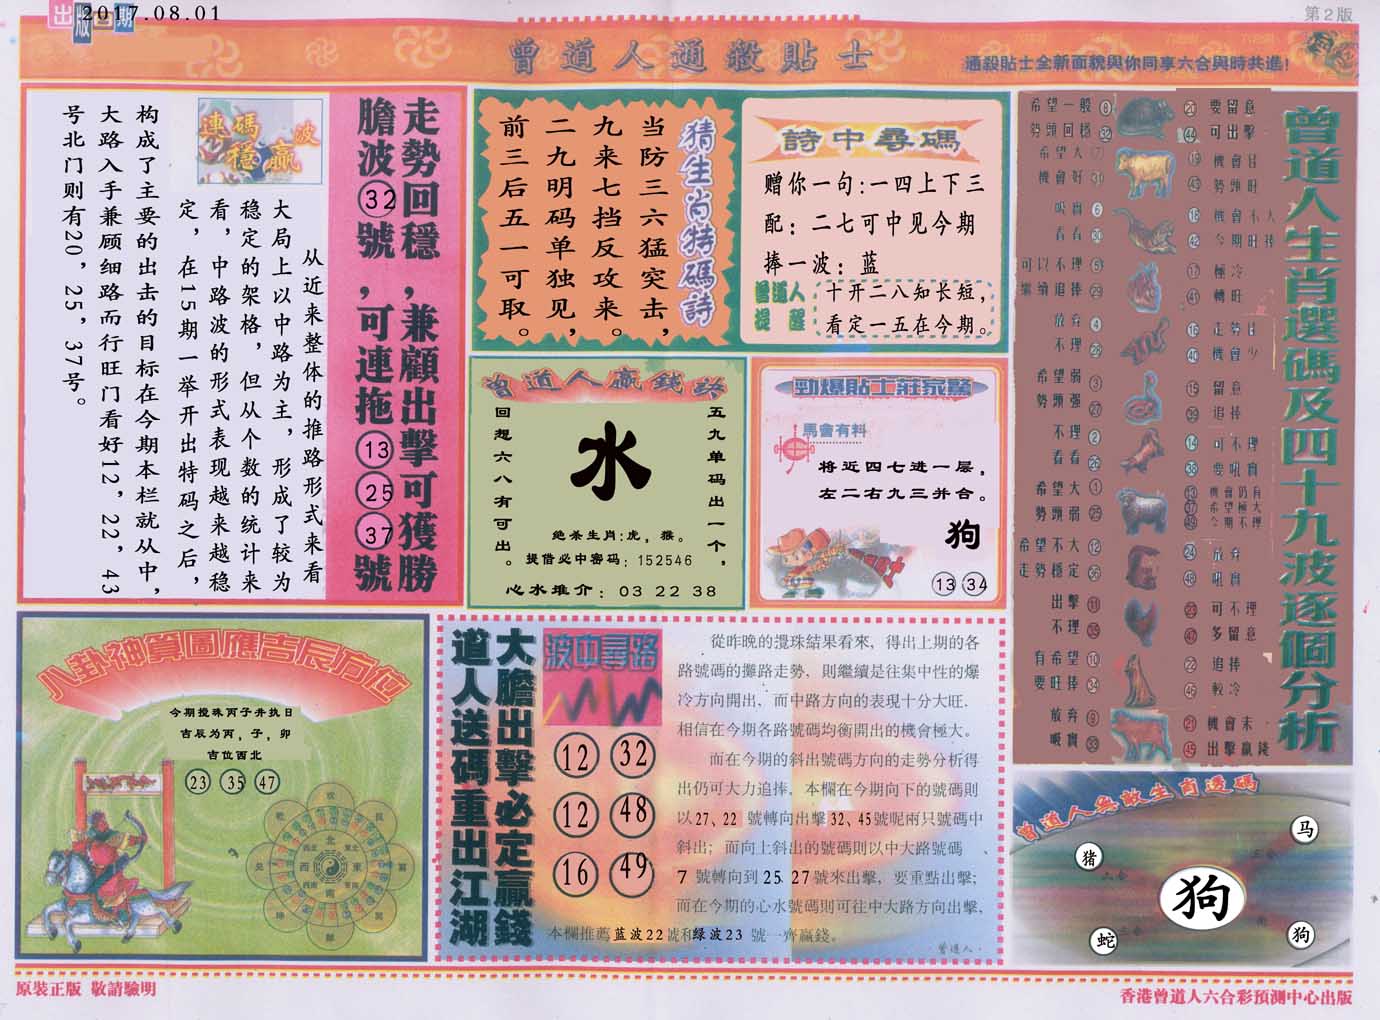 出版日期
2017.08.01
第2版
曾道人通殺貼士
通殺貼士全新面貌與你同享六合與時共進!
走勢回穩,兼顧出擊可獲勝
膽波32號,可連拖13 25 37號
連碼穩贏波
从近来整体的推路形式来看
大局上以中路为主,形成了较为
稳定的架格,但从个数的统计来
看,中路波的形式表现越来越稳
定,在15期一举开出特码之后,
构成了主要的出击的目标在今期本栏就从中,
大路入手兼顾细路而行旺门看好12,22,43
号北门则有20,25,37号。
猜生肖特碼詩
当防三六猛突击,
九来七挡反攻来。
二九明码单独见,
前三后五一可取。
詩中尋碼
赠你一句:一四上下三
配:二七可中见今期
捧一波:蓝
曾道人提醒
十开二八知长短,
看定一五在今期。
曾道人贏錢詩
五九单码出一个,
回想六八有可出。
水
绝杀生肖:虎,猴。
提借必中密码:152546
心水推介:03 22 38
勁爆貼士莊家驚
馬會有料
将近四七进一层,
左二右九三并合。
狗
13 34
曾道人生肖選碼及四十九波逐個分析
希望一般 8
勢頭回穩 32
希望大 7
機會好 31
吼實 6
看看 30
可以不理 5
繼續追捧 29
放弃 4
不理 28
希望弱 3
勢頭强 27
不理 2
看看 26
希望大 1
勢頭弱 25
希望不大 12
走勢穩定 36
出擊 11
不理 35
有希望 10
要旺捧 34
放弃 9
吼實 33
20 要留意
44 可出擊
19 機會佳
43 勢頭旺
18 機會不大
42 今期旺捧
17 極冷
41 轉旺
16 走勢佳
40 機會少
15 留意
39 追捧
14 可不理
38 要吼實
13 機會仍有
37 希望極大
49 今期不理
24 放弃
48 吼實
23 可不理
47 多留意
22 追捧
46 較冷
21 機會末
45 出擊贏錢
八卦神算圖應吉辰方位
今期搅珠丙子井执日
吉辰为丙,子,卯
吉位西北
23 35 47
北
西北
東北
西
東
西南
東南
南
大膽出擊必定贏錢
道人送碼重出江湖
波中尋路
12 32
12 48
16 49
從昨晚的攪珠結果看來,得出上期的各
路號碼的攤路走勢,則繼續是往集中性的爆
冷方向開出,而中路方向的表現十分大旺.
相信在今期各路號碼均衡開出的機會極大。
而在今期的斜出號碼方向的走勢分析得
出仍可大力追捧,本欄在今期向下的號碼則
以27、22 號轉向出擊32、45號呢兩只號碼中
斜出;而向上斜出的號碼則以中大路號碼、
7 號轉向到25 27號來出擊,要重點出擊;
而在今期的心水號碼則可往中大路方向出擊,
本欄推薦蓝波22號和绿波23 號一齊贏錢。
曾道人·
曾道人無敵生肖透碼
马
猪
六合
狗
蛇
狗
原裝正版 敬請驗明
香港曾道人六合彩預測中心出版